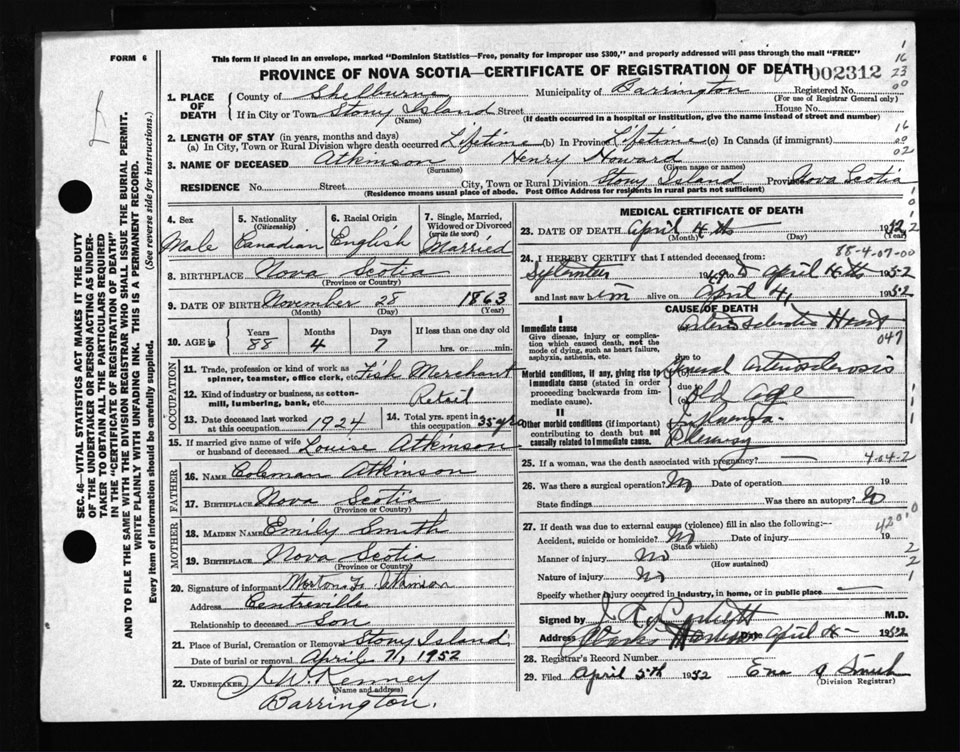 FORM 6
This form if placed in an envelope, marked "Dominion Statistics—Free, penalty for improper use $300," and properly addressed will pass through the mail "FREE"
PROVINCE OF NOVA SCOTIA—CERTIFICATE OF REGISTRATION OF DEATH 002312
1
16
23
00
1. PLACE OF DEATH County of Shelburne Municipality of Barrington Registered No.
(For use of Registrar General only)
If in City or Town Stony Island Street House No.
(Name) (If death occurred in a hospital or institution, give the name instead of street and number)
2. LENGTH OF STAY (in years, months and days)
(a) In City, Town or Rural Division where death occurred Lifetime (b) In Province Lifetime (c) In Canada (if immigrant)
16
00
02
3. NAME OF DECEASED Atkinson Henry Howard
(Surname) (Given name or names)
RESIDENCE No. Street City, Town or Rural Division Stony Island Province Nova Scotia
(Residence means usual place of abode. Post Office Address for residents in rural parts not sufficient)
4. Sex
Male
5. Nationality
(Citizenship)
Canadian
6. Racial Origin
English
7. Single, Married, Widowed or Divorced
(write the word)
Married
8. BIRTHPLACE Nova Scotia
(Province or Country)
9. DATE OF BIRTH November 28 1863
(Month) (Day) (Year)
10. AGE is Years Months Days If less than one day old
88 4 7 hrs. or min.
OCCUPATION
11. Trade, profession or kind of work as spinner, teamster, office clerk, etc. Fish Merchant
12. Kind of industry or business, as cotton-mill, lumbering, bank, etc. Retail
13. Date deceased last worked at this occupation 1924
14. Total yrs. spent in this occupation 35 yrs
15. If married give name of wife or husband of deceased Louise Atkinson
FATHER
16. NAME Coleman Atkinson
17. BIRTHPLACE Nova Scotia
(Province or Country)
MOTHER
18. MAIDEN NAME Emily Smith
19. BIRTHPLACE Nova Scotia
(Province or Country)
20. Signature of informant Morton Atkinson
Address Centreville
Relationship to deceased Son
21. Place of Burial, Cremation or Removal Stony Island
Date of burial or removal April 7, 1952
22. UNDERTAKER J. W. Kenney
(Name and address)
Barrington.
MEDICAL CERTIFICATE OF DEATH
23. DATE OF DEATH April 4th 1952
(Month) (Day) (Year)
88-4-07-00
24. I HEREBY CERTIFY that I attended deceased from:
April 4th 1952
and last saw him alive on April 4, 1952
CAUSE OF DEATH
I
Immediate cause
Give disease, injury or complication which caused death, not the mode of dying, such as heart failure, asphyxia, asthenia, etc.
Arteriosclerotic Heart
047
Morbid conditions, if any, giving rise to immediate cause (stated in order proceeding backwards from immediate cause).
due to General Arteriosclerosis
due to Old age
II
Other morbid conditions (if important) contributing to death but not causally related to immediate cause.
Influenza
Pleurisy
25. If a woman, was the death associated with pregnancy?
4-04-2
26. Was there a surgical operation? No Date of operation 19
State findings Was there an autopsy? No
27. If death was due to external causes (violence) fill in also the following:—
420.0
Accident, suicide or homicide? No Date of injury 19
(State which)
Manner of injury No
(How sustained)
Nature of injury No
Specify whether injury occurred in industry, in home, or in public place
2
2
1
Signed by M.D.
Address Clarks Harbour Date April 4 1952
28. Registrar's Record Number
29. Filed April 5th 1952 Ena Smith
(Division Registrar)
SEC. 46—VITAL STATISTICS ACT MAKES IT THE DUTY OF THE UNDERTAKER OR PERSON ACTING AS UNDERTAKER TO OBTAIN ALL THE PARTICULARS REQUIRED IN THE "CERTIFICATE OF REGISTRATION OF DEATH"
AND TO FILE THE SAME WITH THE DIVISION REGISTRAR WHO SHALL ISSUE THE BURIAL PERMIT.
WRITE PLAINLY WITH UNFADING INK. THIS IS A PERMANENT RECORD.
Every item of information should be carefully supplied. (See reverse side for instructions.)